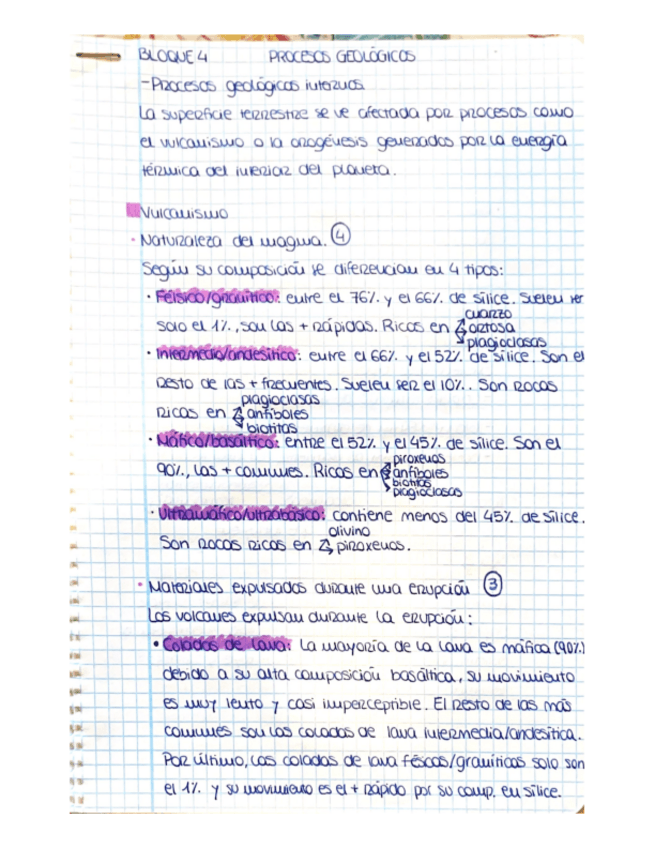 BLOQUE 4 PROCESOS GEOLÓGICOS
-Procesos geológicos internos
La superficie terrestre se ve afectada por procesos como
el vulcanismo o la orogénesis generados por la energía
térmica del interior del planeta.
Vulcanismo
· Naturaleza del magma. ④
Según su composición se diferencian en 4 tipos:
· Félsico/granítico: entre el 76% y el 66% de sílice. Suelen ser
solo el 1%, son las + rápidas. Ricos en cuarzo
ortosa
plagioclasas
· Intermedio/andesítico: entre el 66% y el 52% de sílice. Son el
resto de las + frecuentes. Suelen ser el 10%. Son rocas
ricas en plagioclasas
anfíboles
biotitas
· Máfico/basáltico: entre el 52% y el 45% de sílice. Son el
90%, las + comunes. Ricos en piroxenos
anfíboles
biotitas
plagioclasas
· Ultramáfico/ultrabásico: contiene menos del 45% de sílice.
Son rocas ricas en olivino
piroxenos.
· Materiales expulsados durante una erupción ③
Los volcanes expulsan durante la erupción:
• Coladas de lava: La mayoría de la lava es máfica (90%)
debido a su alta composición basáltica, su movimiento
es muy lento y casi imperceptible. El resto de las más
comunes son las coladas de lava intermedia/andesítica.
Por último, las coladas de lava félsicas/graníticas solo son
el 1% y su movimiento es el + rápido por su comp. en sílice.